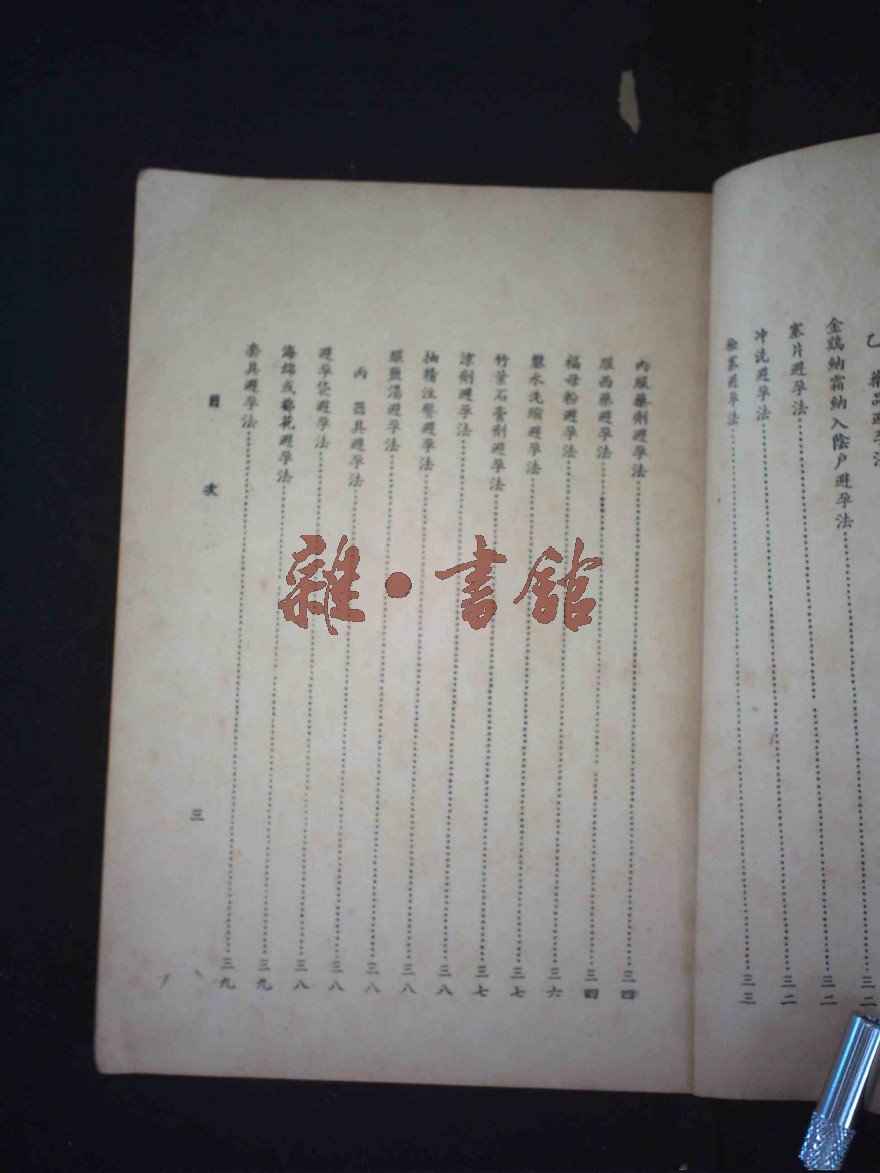 乙 藥品避孕法……三二
金鷄納霜納入陰戶避孕法……三二
塞片避孕法……三二
冲洗避孕法……三三
栓塞避孕法……三三
內服藥劑避孕法……三四
服西藥避孕法……三四
福母粉避孕法……三六
礬水洗滌避孕法……三七
竹葉石膏劑避孕法……三七
涼劑避孕法……三八
抽精注臀避孕法……三八
服鹽湯避孕法……三八
丙 器具避孕法……三八
避孕袋避孕法……三八
海綿或棉花避孕法……三九
套具避孕法……三九
目次
三
雜·書館